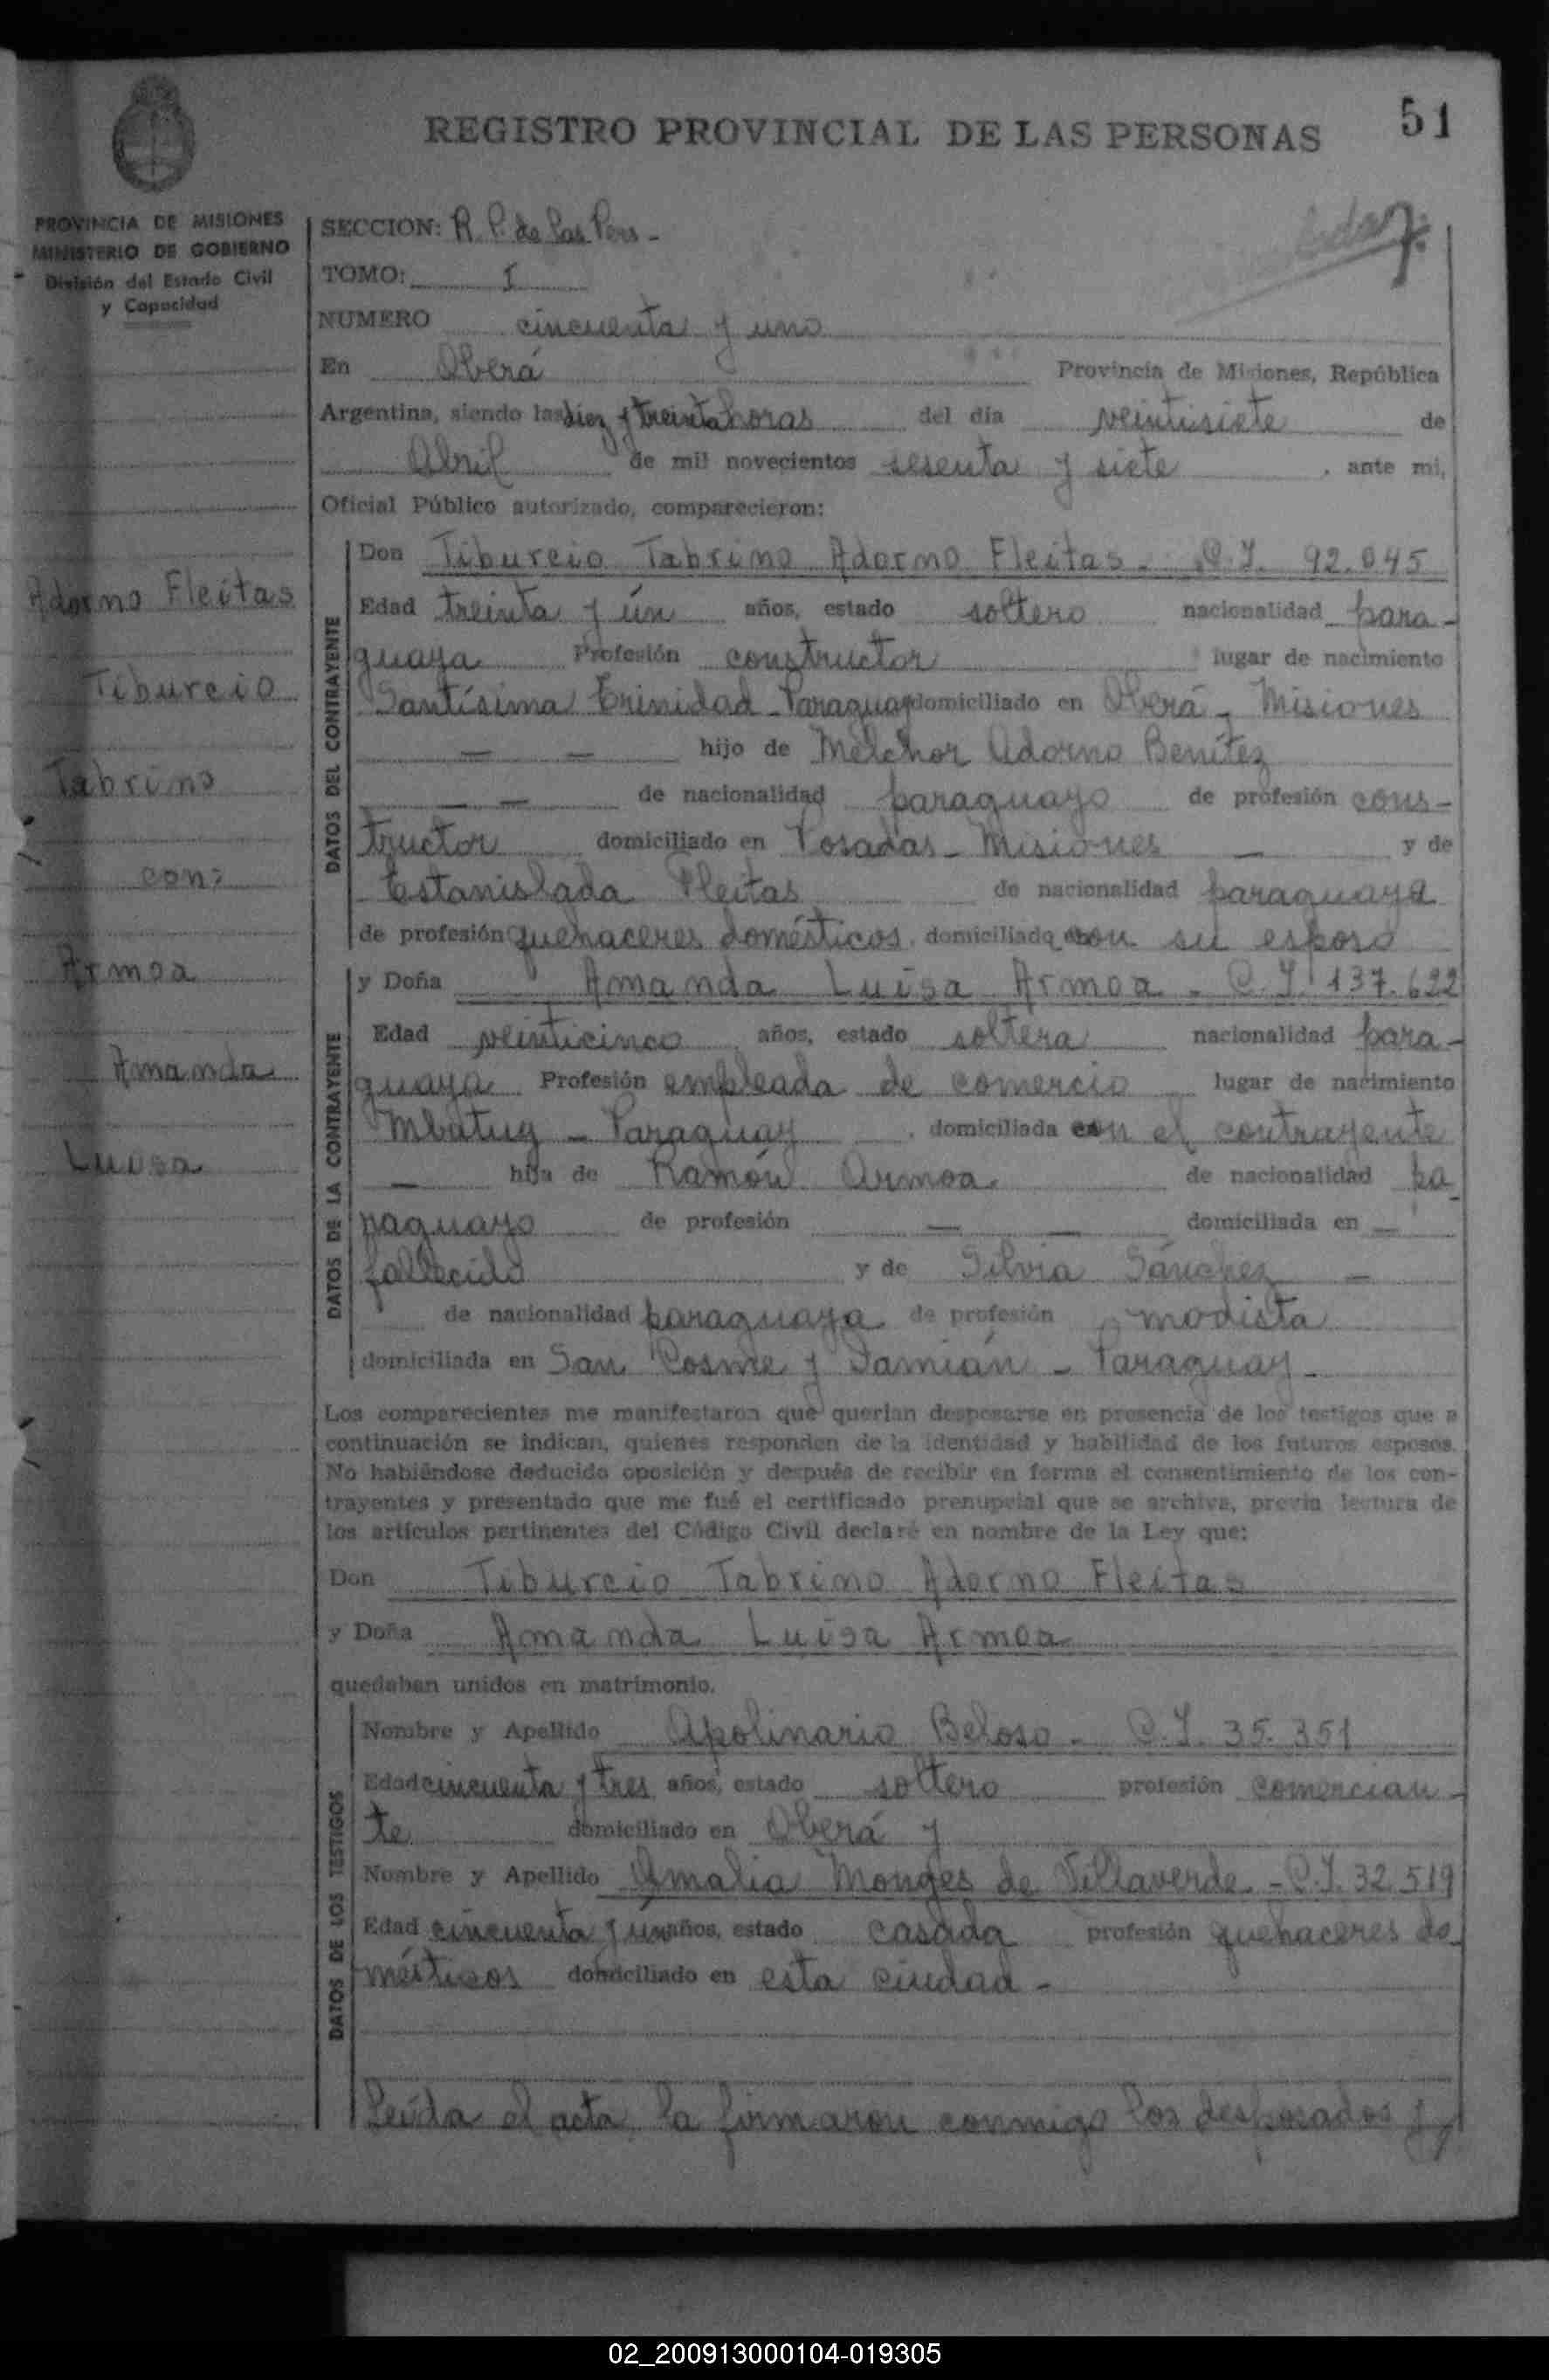 REGISTRO PROVINCIAL DE LAS PERSONAS
51
PROVINCIA DE MISIONES
MINISTERIO DE GOBIERNO
División del Estado Civil
y Capacidad
Adorno Fleitas
Tiburcio
Tabrino
con:
Armoa
Amanda
Luisa
SECCION: R. P. de las Pers -
TOMO: I
NUMERO cincuenta y uno
En Oberá Provincia de Misiones, República
Argentina, siendo las diez y treinta horas del día veintisiete de
Abril de mil novecientos sesenta y siete, ante mi,
Oficial Público autorizado, comparecieron:
DATOS DEL CONTRAYENTE
Don Tiburcio Tabrino Adorno Fleitas - C.I. 92.045
Edad treinta y ún años, estado soltero nacionalidad para-
guaya Profesión constructor lugar de nacimiento
Santísima Trinidad - Paraguay domiciliado en Oberá - Misiones
— — hijo de Melchor Adorno Benítez
— — de nacionalidad paraguayo de profesión cons-
tructor domiciliado en Posadas - Misiones — y de
Estanislada Fleitas de nacionalidad paraguaya
de profesión quehaceres domésticos, domiciliada con su esposo
DATOS DE LA CONTRAYENTE
y Doña Amanda Luisa Armoa - C.I. 137.622
Edad veinticinco años, estado soltera nacionalidad para-
guaya Profesión empleada de comercio lugar de nacimiento
Mbatuy - Paraguay, domiciliada con el contrayente
— hija de Ramón Armoa de nacionalidad pa
raguayo de profesión — — domiciliada en —
fallecido y de Silvia Sánchez —
de nacionalidad paraguaya de profesión modista
domiciliada en San Cosme y Damián - Paraguay -
Los comparecientes me manifestaron que querían desposarse en presencia de los testigos que a
continuación se indican, quienes responden de la identidad y habilidad de los futuros esposos.
No habiéndose deducido oposición y después de recibir en forma el consentimiento de los con-
trayentes y presentado que me fué el certificado prenupcial que se archiva, previa lectura de
los artículos pertinentes del Código Civil declaré en nombre de la Ley que:
Don Tiburcio Tabrino Adorno Fleitas
y Doña Amanda Luisa Armoa
quedaban unidos en matrimonio.
DATOS DE LOS TESTIGOS
Nombre y Apellido Apolinario Beloso - C.I. 35.351
Edad cincuenta y tres años, estado soltero profesión comercian-
te domiciliado en Oberá y
Nombre y Apellido Amalia Monges de Villaverde - C.I. 32.519
Edad cincuenta y ún años, estado casada profesión quehaceres do-
mésticos domiciliado en esta ciudad -
Leída el acta la firmaron conmigo los desposados y
02_200913000104-019305